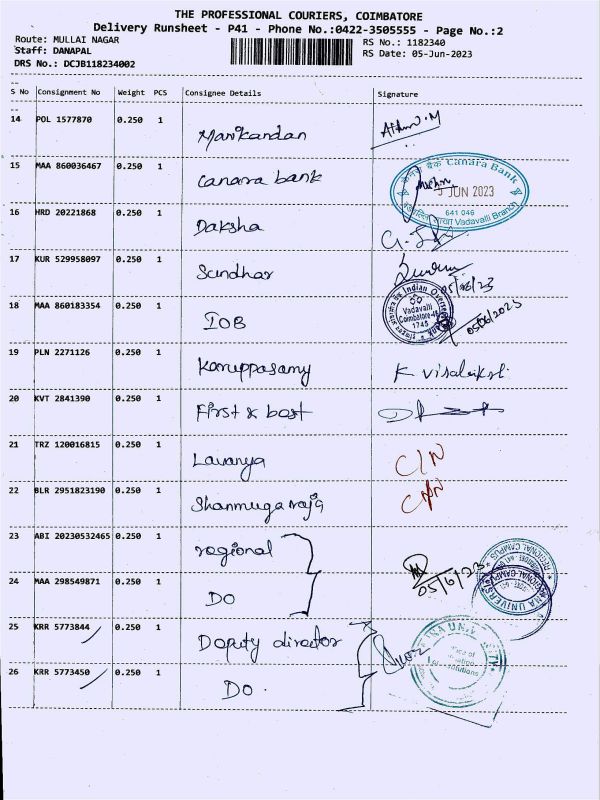 THE PROFESSIONAL COURIERS, COIMBATORE
Delivery Runsheet - P41 - Phone No.:0422-3505555 - Page No.:2
Route: MULLAI NAGAR
RS No.: 1182340
Staff: DANAPAL
RS Date: 05-Jun-2023
DRS No.: DCJB118234002
S No Consignment No Weight PCS Consignee Details Signature
14 POL 1577870 0.250 1 Manikandan
15 MAA 860036467 0.250 1 Canara bank
केनरा बैंक Canara Bank
5 JUN 2023
641 046
Vadavalli Branch
16 HRD 20221868 0.250 1 Daksha
17 KUR 529958097 0.250 1 Sundhar
05/06/23
18 MAA 860183354 0.250 1 IOB
Indian Overseas Bank
Vadavalli
Coimbatore-46
1745
05/06/2023
19 PLN 2271126 0.250 1 Karuppasamy K Visalakshi
20 KVT 2841390 0.250 1 First & best
21 TRZ 120016815 0.250 1 Lavanya C/N
22 BLR 2951823190 0.250 1 Shanmuga raja
23 ABI 20230532465 0.250 1 regional
05/6/23
REGIONAL CAMPUS
24 MAA 298549871 0.250 1 DO
25 KRR 5773844 0.250 1 Deputy director
26 KRR 5773450 0.250 1 DO.